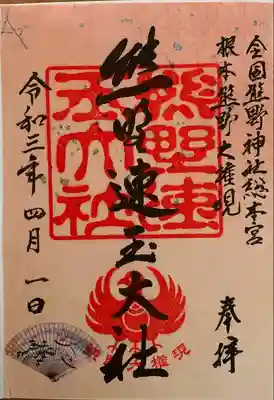 全国熊野神社総本宮
根本熊野大権現
奉拝
熊野速玉大社
熊野速玉大社
令和三年四月一日